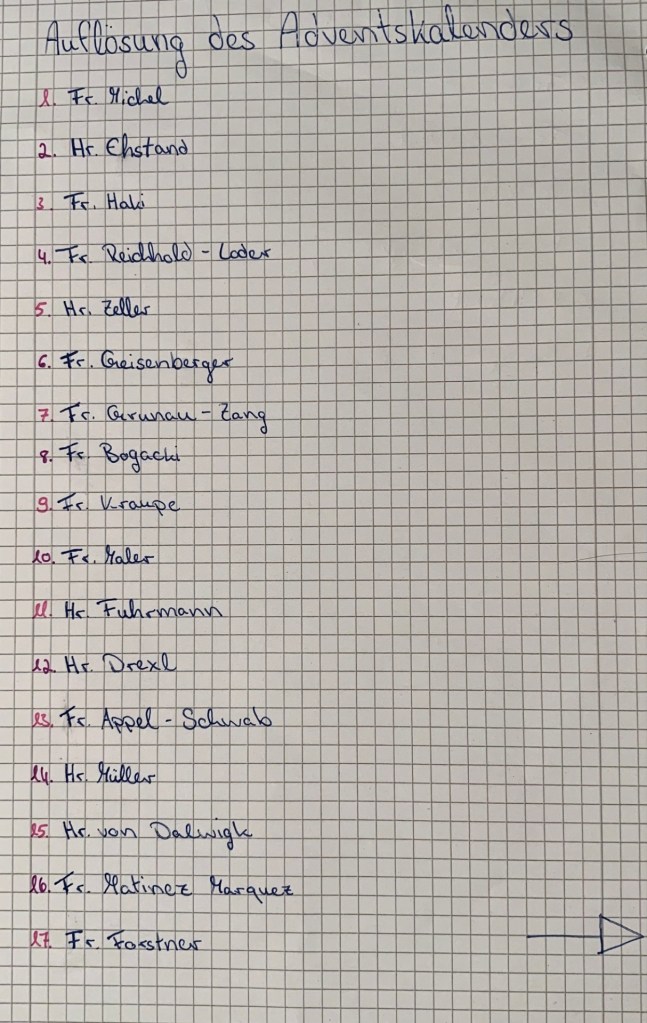 Auflösung des Adventskalenders
1. Fr. Michel
2. Hr. Ehstand
3. Fr. Haki
4. Fr. Reichhold - Loder
5. Hr. Zeller
6. Fr. Geisenberger
7. Fr. Grunau - Zang
8. Fr. Bogacki
9. Fr. Kraupe
10. Fr. Maler
11. Hr. Fuhrmann
12. Hr. Drexl
13. Fr. Appel - Schwab
14. Hr. Müller
15. Hr. von Dalwigk
16. Fr. Matinez Marquez
17. Fr. Forstner